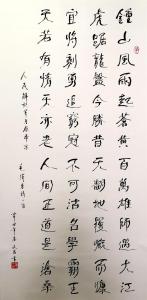 鐘山風雨起蒼黄百萬雄師過大江
虎踞龍盤今勝昔天翻地覆慨而慷
宜將剩勇追窮寇不可沽名學霸王
天若有情天亦老人間正道是滄桑
人民解放軍占領南京
毛澤東詩一首